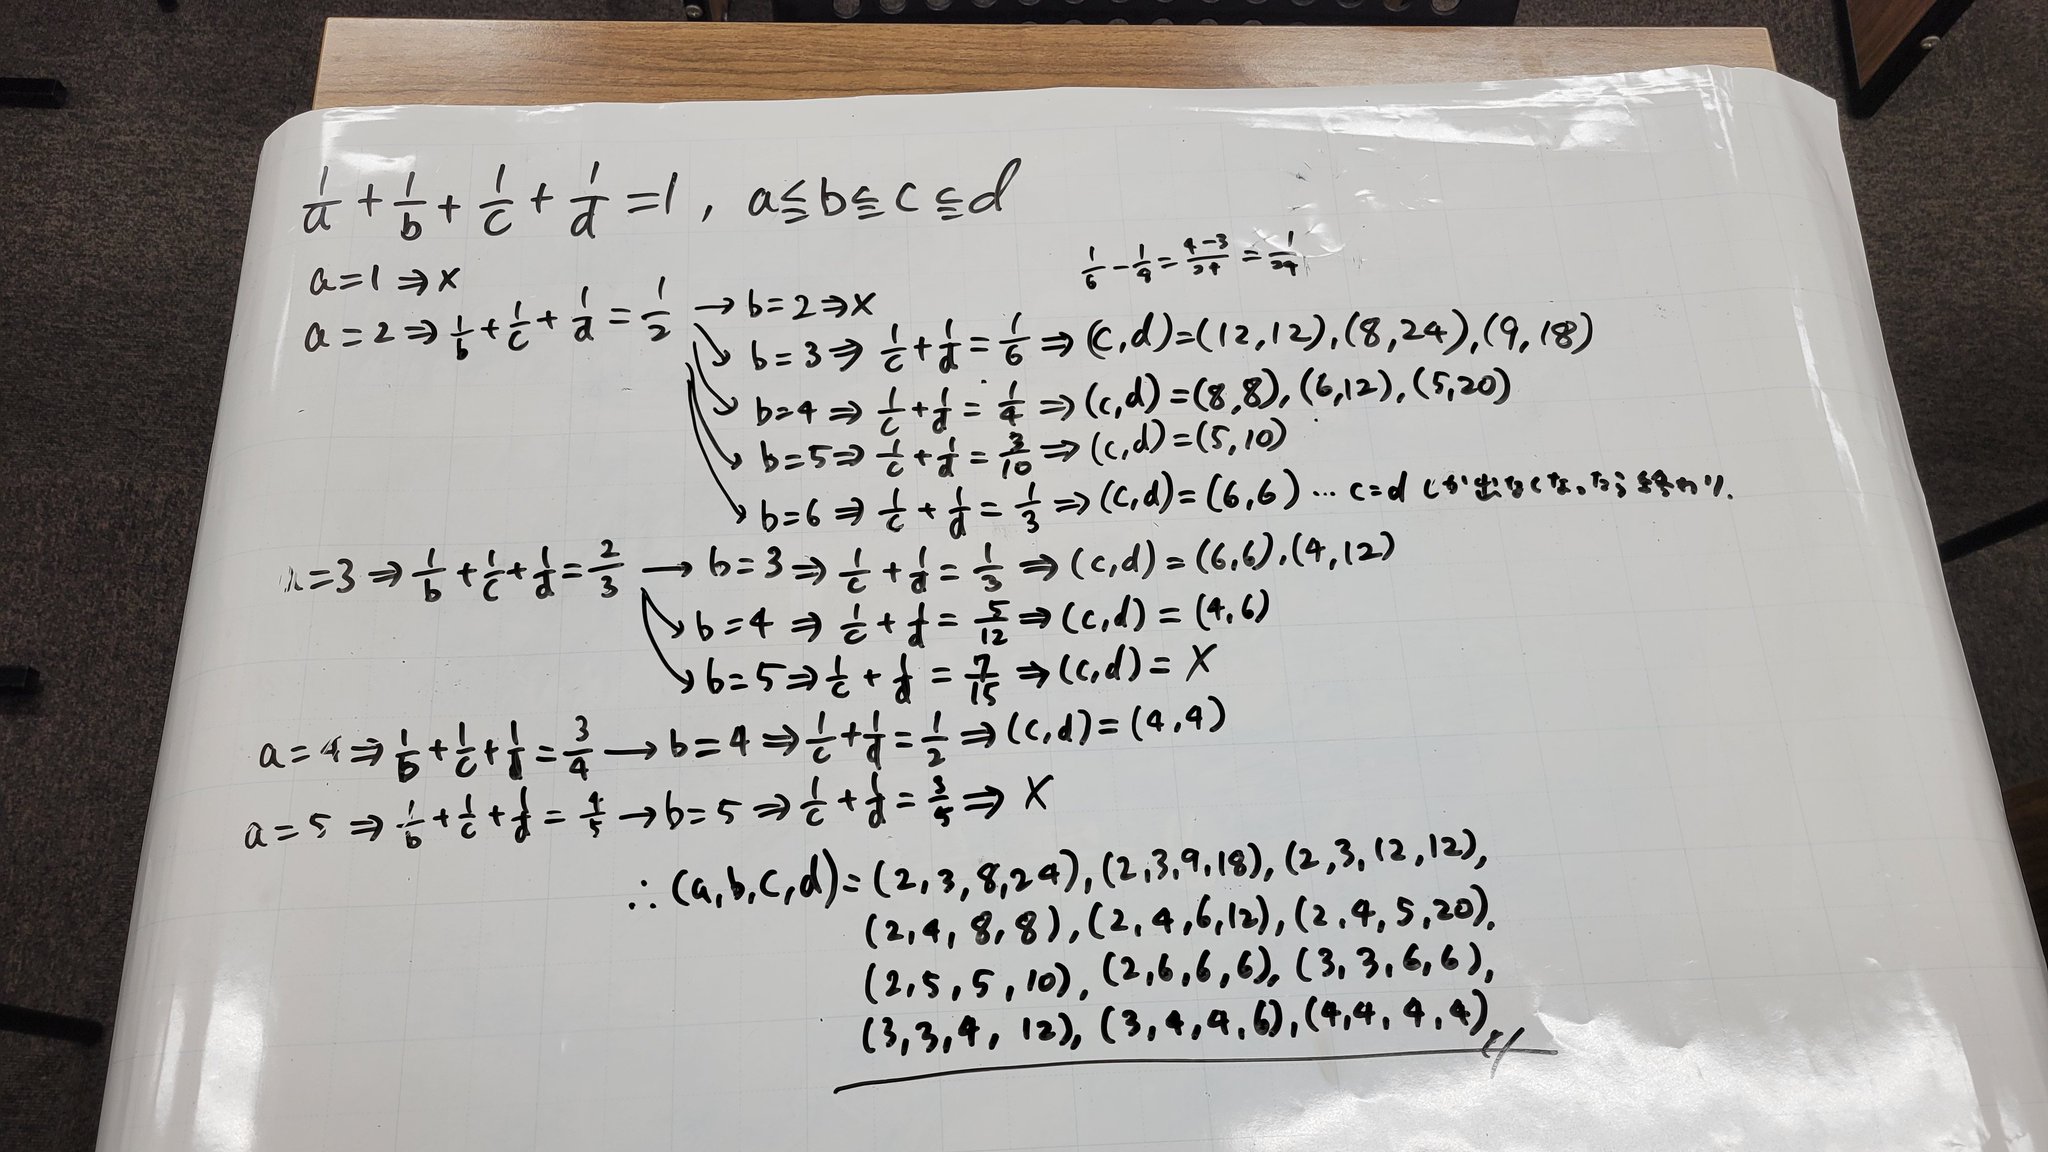 1/a + 1/b + 1/c + 1/d = 1, a ≦ b ≦ c ≦ d
1/6 - 1/8 = 4-3/24 = 1/24
a=1 ⇒ ×
a=2 ⇒ 1/b + 1/c + 1/d = 1/2 → b=2 ⇒ ×
b=3 ⇒ 1/c + 1/d = 1/6 ⇒ (c,d)=(12,12),(8,24),(9,18)
b=4 ⇒ 1/c + 1/d = 1/4 ⇒ (c,d)=(8,8),(6,12),(5,20)
b=5 ⇒ 1/c + 1/d = 3/10 ⇒ (c,d)=(5,10)
b=6 ⇒ 1/c + 1/d = 1/3 ⇒ (c,d)=(6,6) … c=d しか出なくなったら終わり.
a=3 ⇒ 1/b + 1/c + 1/d = 2/3 → b=3 ⇒ 1/c + 1/d = 1/3 ⇒ (c,d)=(6,6),(4,12)
b=4 ⇒ 1/c + 1/d = 5/12 ⇒ (c,d)=(4,6)
b=5 ⇒ 1/c + 1/d = 7/15 ⇒ (c,d)=×
a=4 ⇒ 1/b + 1/c + 1/d = 3/4 → b=4 ⇒ 1/c + 1/d = 1/2 ⇒ (c,d)=(4,4)
a=5 ⇒ 1/b + 1/c + 1/d = 4/5 → b=5 ⇒ 1/c + 1/d = 3/5 ⇒ ×
∴ (a,b,c,d)=(2,3,8,24),(2,3,9,18),(2,3,12,12),
(2,4,8,8),(2,4,6,12),(2,4,5,20),
(2,5,5,10),(2,6,6,6),(3,3,6,6),
(3,3,4,12),(3,4,4,6),(4,4,4,4)